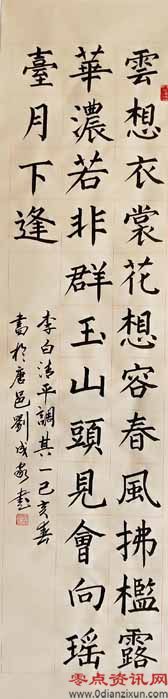 雲想衣裳花想容春風拂檻露
華濃若非群玉山頭見會向瑤
臺月下逢
李白清平調其一己亥春
書於唐邑劉成
零点资讯网
www.0dianzixun.com